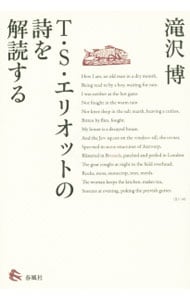 滝沢博
T・S・エリオットの
詩を
解読する
Here I am, an old man in a dry month,
Being read to by a boy, waiting for rain.
I was neither at the hot gates
Nor fought in the warm rain
Nor knee deep in the salt marsh, heaving a cutlass,
Bitten by flies, fought.
My house is a decayed house,
And the Jew squats on the window sill, the owner,
Spawned in some estaminet of Antwerp,
Blistered in Brussels, patched and peeled in London.
The goat coughs at night in the field overhead;
Rocks, moss, stonecrop, iron, merds.
The woman keeps the kitchen, makes tea,
Sneezes at evening, poking the peevish gutter.
春風社